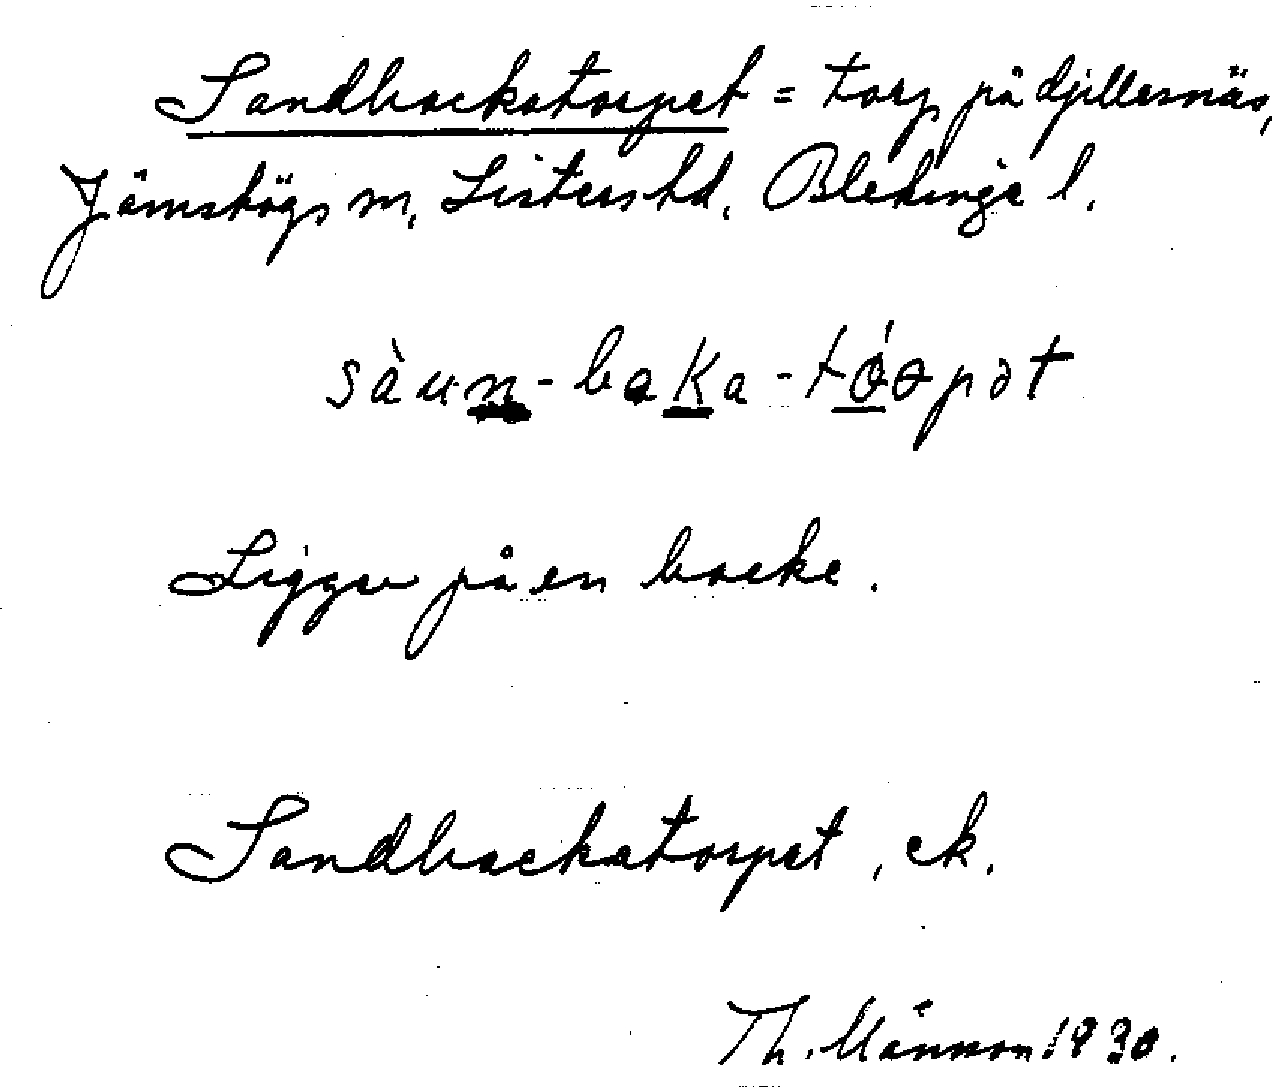 Sandbackatorpet = torp på djillesnäs,
Jämshögs sn, Listers hd, Blekinge l.
sàun-baka-tóəpət
Ligger på en backe.
Sandbackatorpet, ek.
Th. Månsson 1930.